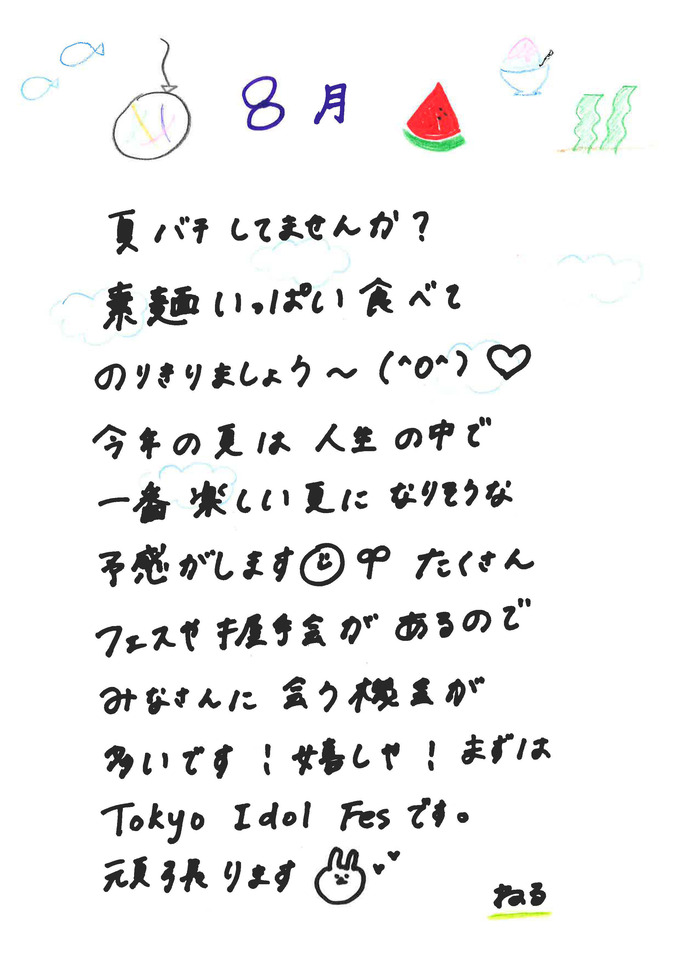 8月
夏バテしてませんか？
素麺いっぱい食べて
のりきりましょう〜(^o^)♡
今年の夏は人生の中で
一番楽しい夏になりそうな
予感がします たくさん
フェスや握手会があるので
みなさんに会う機会が
多いです！嬉しや！まずは
Tokyo Idol Fesです。
頑張ります
ねる